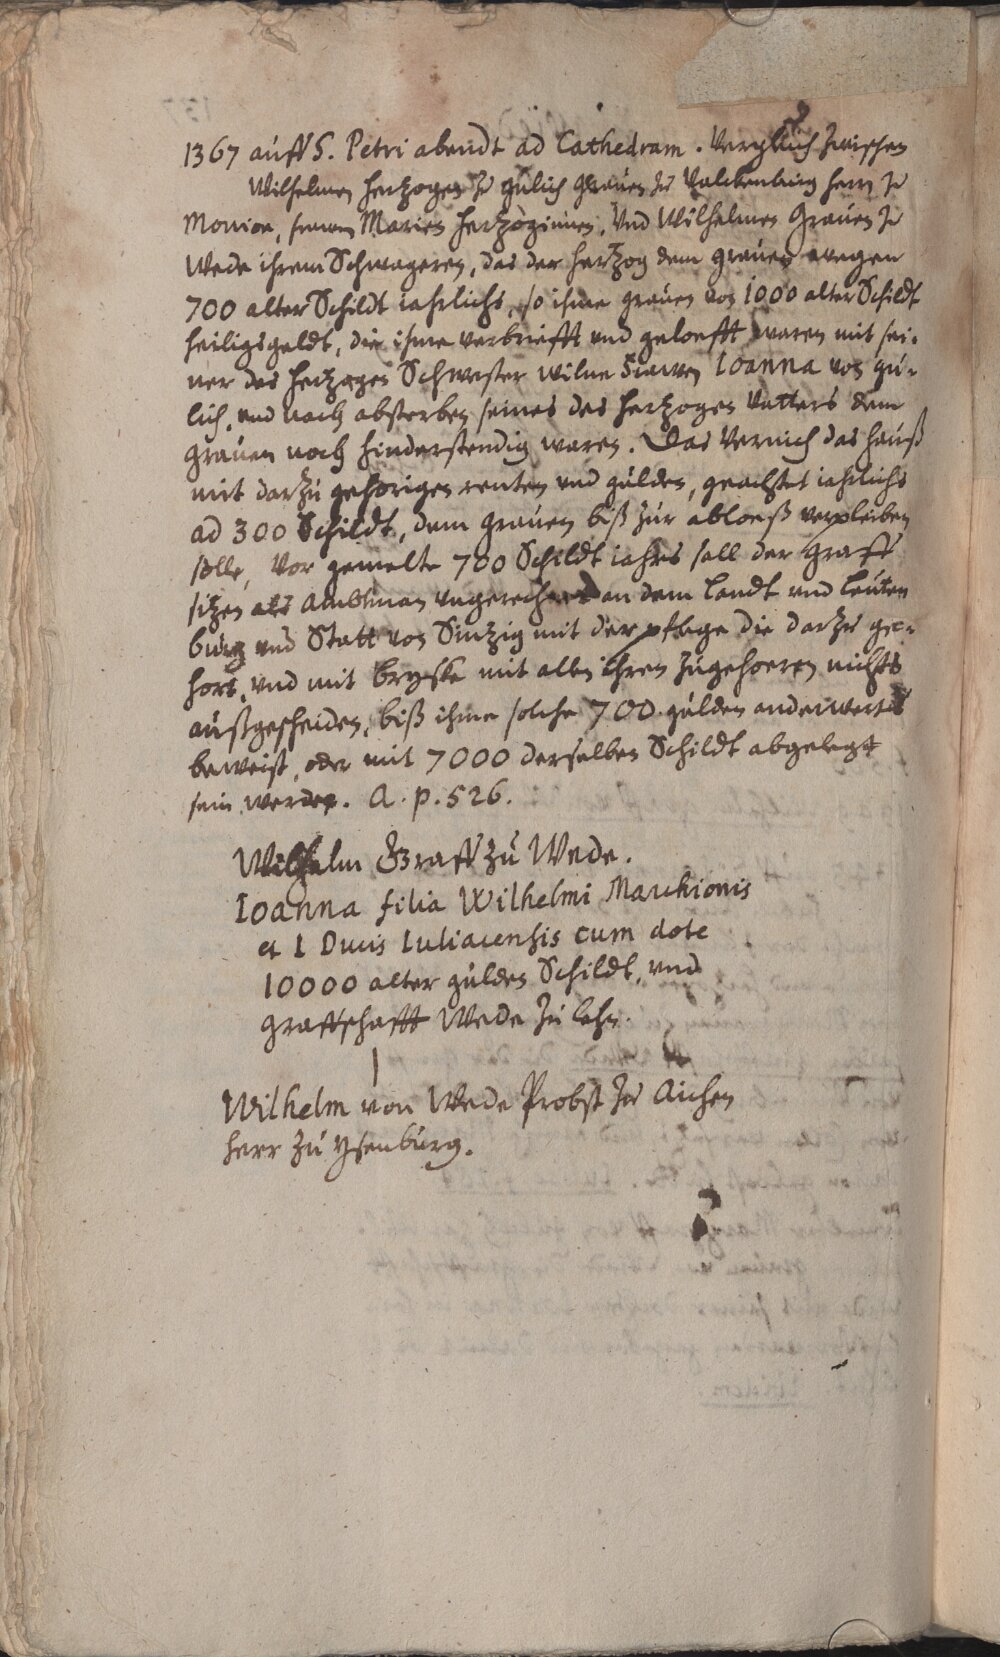 1367 auff S. Petri abendt ad Cathedram. Verglich zwischen
Wilhelmen Hertzogen zu Gulich Grauen zu Valckenburg herrn zu
Monioe, frauen Marien Hertzoginnen, Vnd Wilhelmen Grauen zu
Wede ihrem Schwageren, das der Hertzog dem Grauen wegen
700 alter Schildt iahrlichs, so ihme Grauen von 1000 alter Schildt
heiligsgeldt, die ihme verbriefft vnd geloefft waren mit sei-
ner des Hertzogen Schwester wilne frawen Ioanna von Gu-
lich, vnd nach absterben seines des Hertzogen Vatters dem
Grauen noch hinderstendig waren. Das Vernich das hauß
mit darzu gehorigen renten vnd gulden, geachtet iahrlichs
ad 300 Schildt, dem Grauen biß zur abloeß verpleiben
solle, Vor gemelte 700 Schildt iahrs sall der Graff
sitzen als Ambtman vngerechnet an dem Landt vnd Leuten
burg vnd Statt von Sintzig mit der pflege die darzu ge-
hort, vnd mit Bryske mit allen ihren zugehoeren nichts
außgescheiden, biß ihme solche 700 gulden anderwerts
beweist, oder mit 7000 derselben Schildt abgelegt
sein werden. A. p. 526.
Wilhelm Graff zu Wede.
Ioanna filia Wilhelmi Marchionis
et I Ducis Iuliacensis cum dote
10000 alter gulden Schildt, vnd
Graffschafft Wede zu lehn.
Wilhelm von Wede Probst zu Aichen
herr zu Ysenburg.